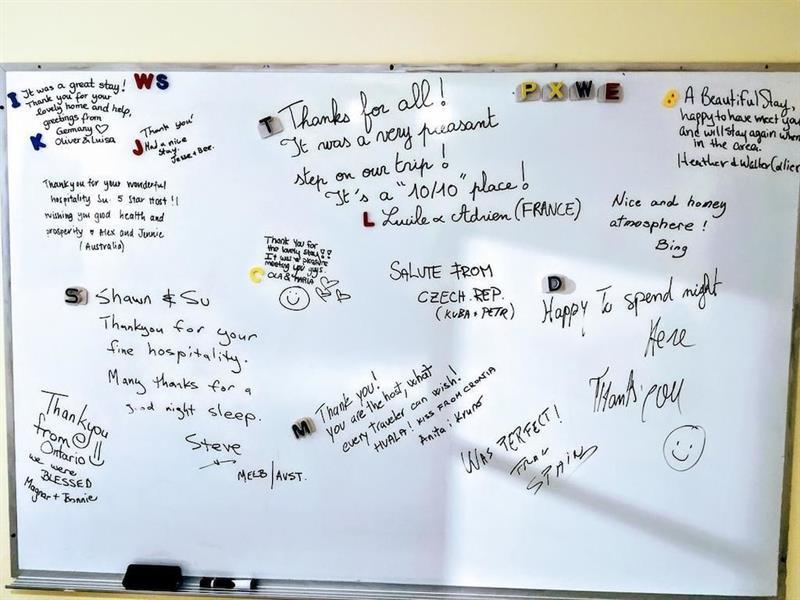 I
It was a great stay!
Thank you for your
lovely home and help,
greetings from
Germany
Oliver & Luisa
K
WS
J
Thank you!
Had a nice
stay.
Jesse + Bee.
Thankyou for your wonderful
hospitality Su. 5 Star Host!!
wishing you good health and
prosperity Alex and Jennie
(Australia)
T
Thanks for all!
It was a very pleasant
step on our trip!
It's a "10/10" place!
L
Lucile & Adrien (FRANCE)
PXWE
8
A Beautiful Stay,
happy to have meet you
and will stay again when
in the area.
Heather & Walter Collier
Nice and homey
atmosphere!
Bing
C
Thank you for
the lovely stay!!
It was a pleasure
meeting you guys.
OLA &
SALUTE FROM
CZECH. REP.
(KUBA + PETR)
D
Happy To spend night
Here
Thank you
S
Shawn & Su
Thankyou for your
fine hospitality.
Many thanks for a
good night sleep.
Steve
MELB/AUST.
M
Thank you!
you are the host, what
every traveler can wish!
HVALA! KISS FROM CROATIA
Anita i Kruno
WAS PERFECT!
FROM
SPAIN
Thankyou
from
Ontario
we were
BLESSED
Magnar + Bonnie